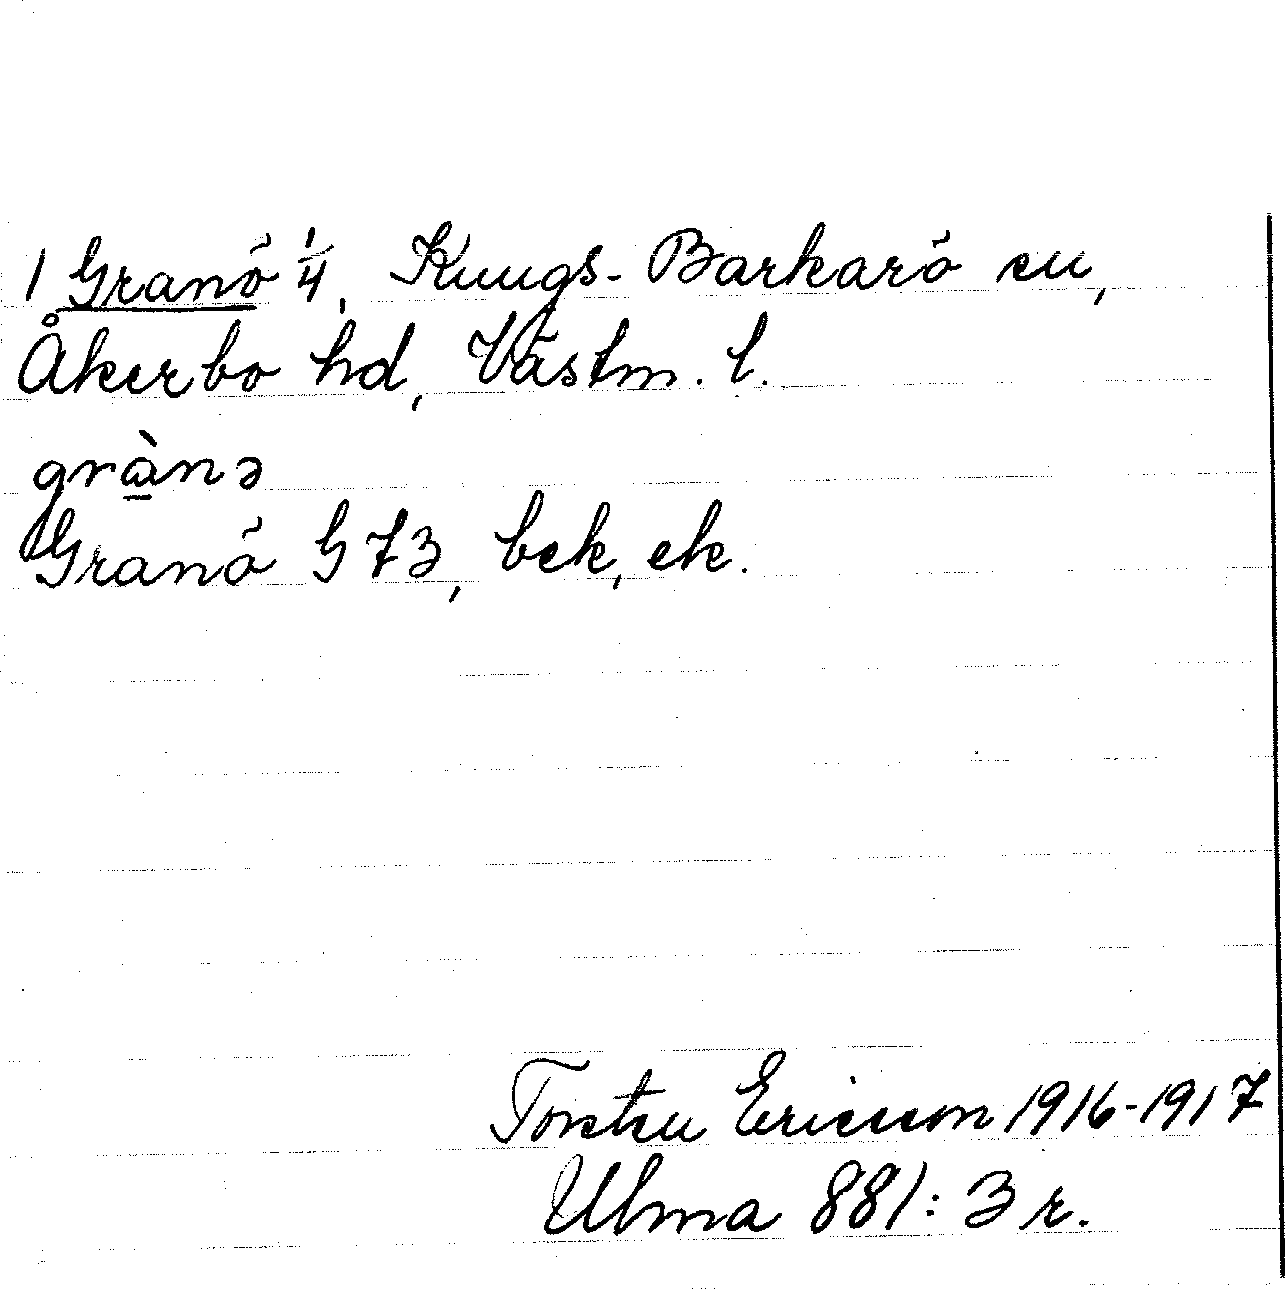 1 Granö 1/4, Kungs-Barkarö sn,
Åkerbo hd, Västm. l.
gràn̲ə
Granö G 73, bek, ek.
Torsten Ericsson 1916-1917
Ulma 881:3 r.